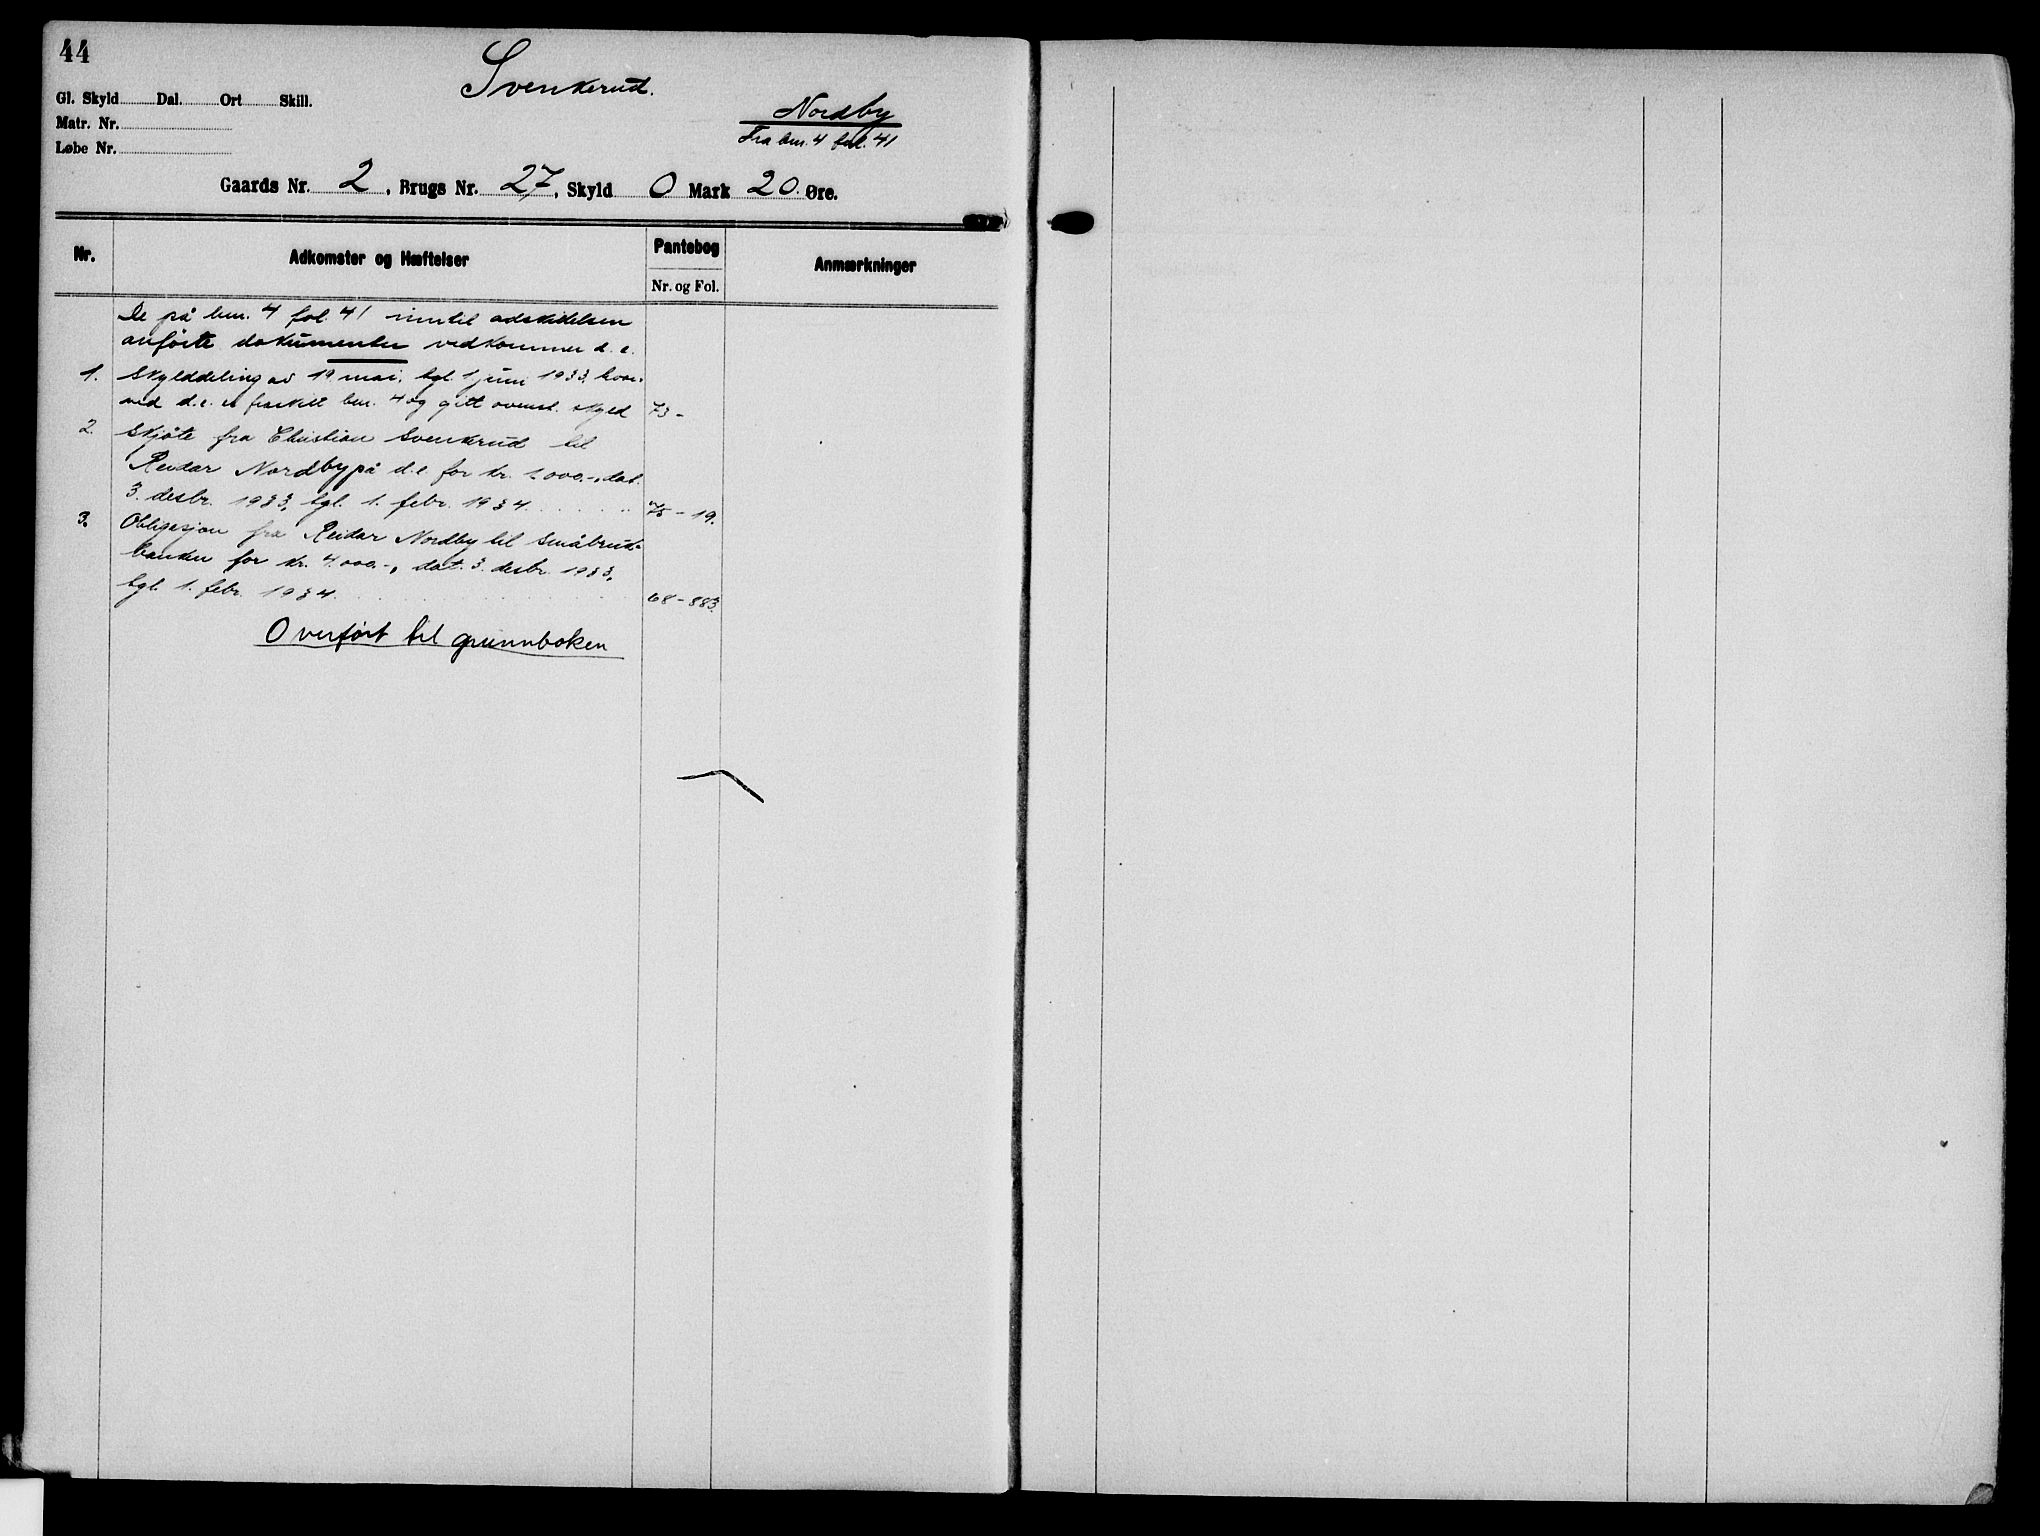 44
Svenkerud.
Gl. Skyld Dal. Ort Skill.
Matr. Nr.
Løbe Nr.
Nordby
Fra bnr. 4 fol. 41
Gaards Nr. 2, Brugs Nr. 27, Skyld 0 Mark 20 Øre.
Nr. Adkomster og Hæftelser Pantebog Anmærkninger
Nr. og Fol.
De på bnr. 4 fol. 41 inntil adskillelsen
anførte dokumenter vedkommer d. e.
1. Skylddeling av 19. mai, tgl. 1 juni 1933, hvor-
ved d.e. er fraskilt bnr. 4 og gitt ovenst. skyld 73 -
2. Skjøte fra Christian Svenkrud til
Reidar Nordby på d.e. for kr. 1.000.-, dat.
3. desbr. 1933, tgl. 1. febr. 1934. . . . . . . 75 - 19.
3. Obligasjon fra Reidar Nordby til Småbruk-
banken for kr. 4.000.-, dat. 3. desbr. 1933,
tgl. 1. febr. 1934. . . . . . . . . . 68 - 883.
Overført til grunnboken